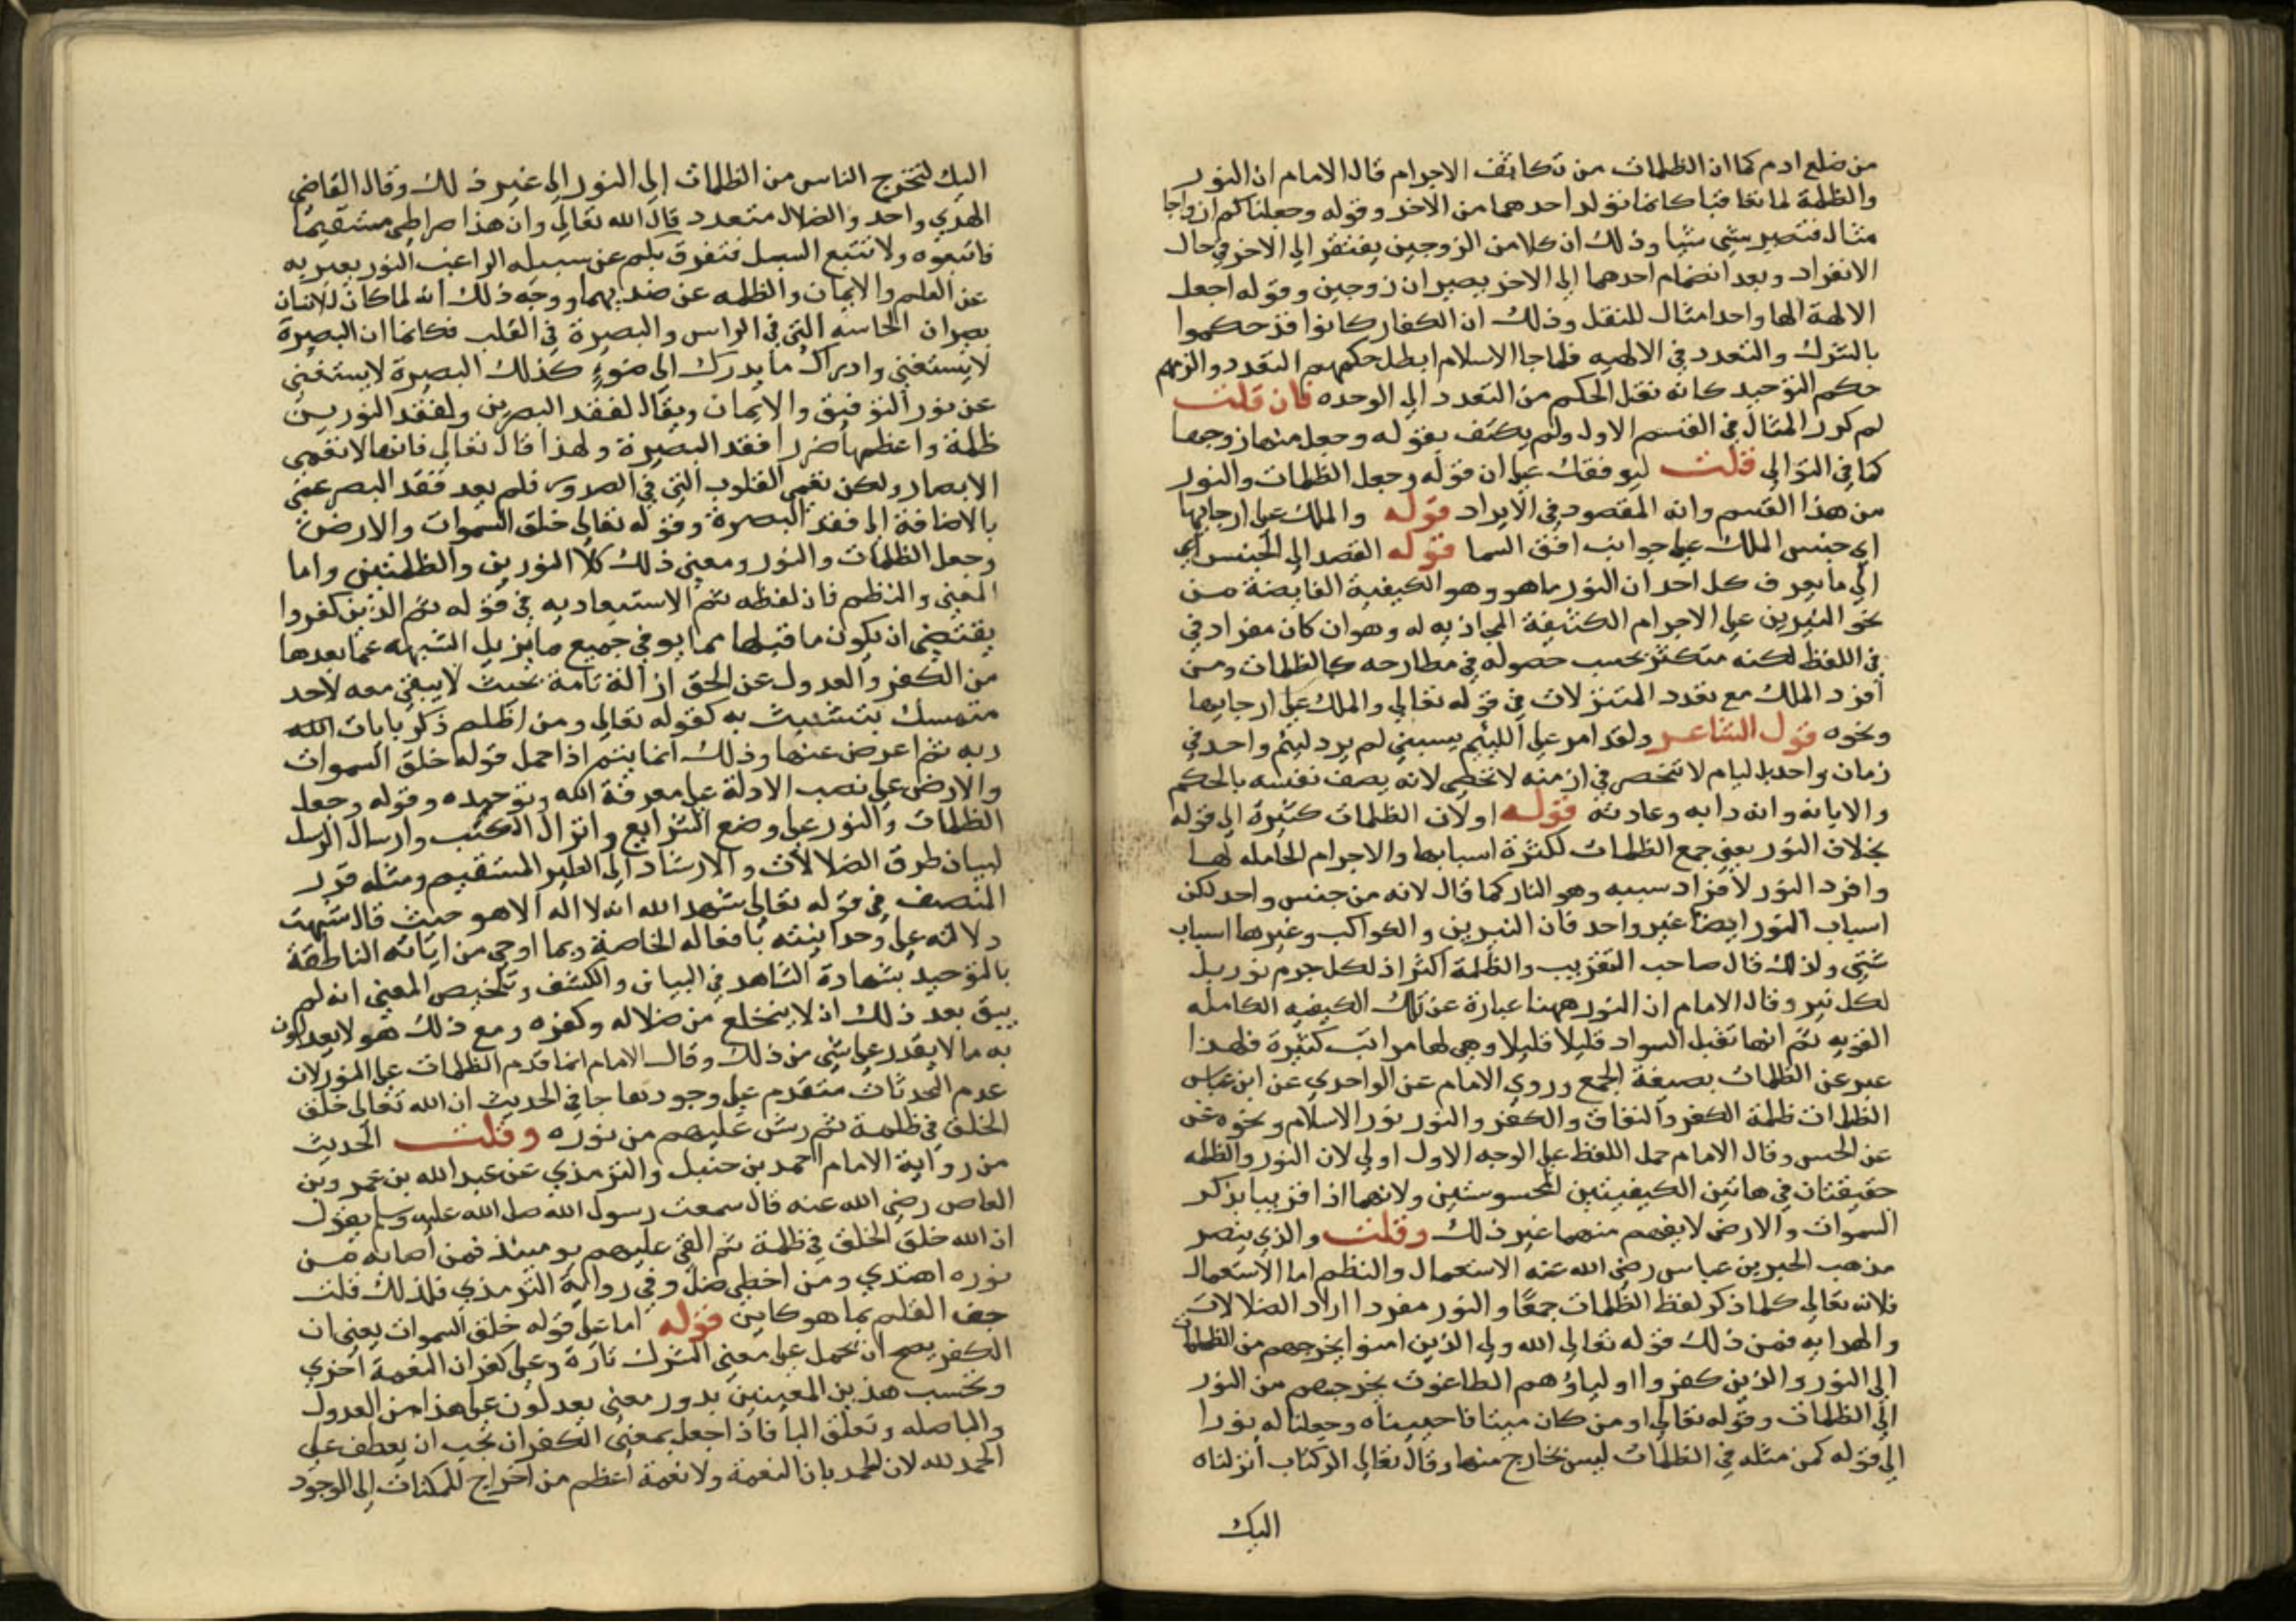 من ضلع ادم كما ان الظلمات من تكاثف الاجرام قال الامام ان النور
والظلمة لما تعاقبا كانما تولد احدهما من الاخر وقوله وجعلناكم ازواجا
مثال فتصير شي شيا وذلك ان كلا من الزوجين يفتقر الي الاخر في حال
الانفراد وبعد انضمام احدهما الي الاخر يصيران زوجين وقوله اجعل
الالهة الها واحدا مثال للنقل وذلك ان الكفار كانوا قد حكموا
بالشرك والتعدد في الالهيه فلما جا الاسلام ابطل حكمهم التعدد والزمهم
حكم التوحيد كانه نقل الحكم من التعدد الي الوحده فان قلت
لم كرر المثال في القسم الاول ولم يكتف بقوله وجعل منها زوجها
كما في التوالي قلت ليوفقك علي ان قوله وجعل الظلمات والنور
من هذا القسم وانه المقصود في الايراد قوله والملك علي ارجايها
اي جنس الملك علي جوانب افق السما قوله القصد الي الجنس اي
الي ما يعرف كل احد ان النور ما هو وهو الكيفية الفايضة من
نحو النيرين علي الاجرام الكثيفة المحاذيه له وهو ان كان مفرادا في
في اللفظ لكنه متكثر بحسب حصوله في مطارحه كالظلمات ومن
افرد الملك مع تعدد المتنزلات في قوله تعالي والملك علي ارجايها
ونحوه قول الشاعر ولقد امر علي اللييم يسبني لم يرد لييم واحد في
زمان واحد بل ليام لا تنحصر في ازمنه لا تحصي لانه يصف نفسه بالحكم
والاباية وانه دابه وعادته قوله اولان الظلمات كثيرة الي قوله
بخلاف النور يعني جمع الظلمات لكثرة اسبابها والاجرام الحامله لها
وافرد النور لافراد سببه وهو النار كما قال لانه من جنس واحد لكن
اسباب النور ايضا غير واحد فان النيرين والكواكب وغيرها اسباب
شتي ولذلك قال صاحب التقريب والظلمة اكثر اذ لكل جرم نور بل
لكل نير وقال الامام ان النور ههنا عبارة عن تلك الكيفيه الكامله
القويه ثم انها تقبل السواد قليلا قليلا وهي لها مراتب كثيرة فلهذا
عبر عن الظلمات بصيغة الجمع وروي الامام عن الواحدي عن ابن عباس
الظلمات ظلمة الكفر والنفاق والكفر والنور نور الاسلام ونحوه عن
عن الحسن وقال الامام حمل اللفظ علي الوجه الاول اولي لان النور والظلمه
حقيقتان في هاتين الكيفيتين المحسوستين ولانهما اذا قرنا بذكر
السموات والارض لا يفهم منهما غير ذلك وقلت والذي ينصر
مذهب الحبر بن عباس رضي الله عنه الاستعمال والنظم اما الاستعمال
فلانه تعالي كلما ذكر لفظ الظلمات جمعا والنور مفردا اراد الضلالات
والهدايه فمن ذلك قوله تعالي الله ولي الذين امنوا يخرجهم من الظلمات
الي النور والذين كفروا اولياوهم الطاغوت يخرجهم من النور
الي الظلمات وقوله تعالي او من كان ميتا فاحييناه وجعلنا له نورا
الي قوله كمن مثله في الظلمات ليس بخارج منها وقال تعالي الر كتاب انزلناه
اليك
اليك لتخرج الناس من الظلمات الي النور الي غير ذلك وقال القاضي
الهدي واحد والضلال متعدد قال الله تعالي وان هذا صراطي مستقيما
فاتبعوه ولا تتبع السبل فتفرق بكم عن سبيله الراغب النور يعبر به
عن العلم والايمان والظلمه عن ضديهما ووجه ذلك انه لما كان للانسان
بصران الحاسه التي في الراس والبصيرة في القلب فكما ان البصيرة
لا يستغني وادراك ما يدرك الي ضوء كذلك البصيرة لا يستغني
عن نور التوفيق والايمان ويقال لفقد البصرين ولفقد النورين
ظلمة واعظمها ضررا فقد البصيرة ولهذا قال تعالي فانها لا تعمي
الابصار ولكن تعمي القلوب التي في الصدور فلم يعد فقد البصر عمي
بالاضافة الي فقد البصيرة وقوله تعالي خلق السموات والارض
وجعل الظلمات والنور ومعني ذلك كلا النورين والظلمتين واما
المعني والنظم فان لفظه ثم الاستبعاديه في قوله ثم الذين كفروا
يقتضي ان يكون ما قبلها مما يوفي جميع ما يزيل الشبهه عما بعدها
من الكفر والعدول عن الحق ازالة تامة بحيث لا يبقي معه لاحد
متمسك يتشبث به كقوله تعالي ومن اظلم ذكر بايات الله
ربه ثم اعرض عنها وذلك انما يتم اذا حمل قوله خلق السموات
والارض علي نصب الادلة علي معرفة الله وتوحيده وقوله وجعل
الظلمات والنور علي وضع الشرايع وانزال الكتب وارسال الرسل
لبيان طرق الضلالات والارشاد الي الطريق المستقيم ومثله قرر
المنصف في قوله تعالي شهد الله انه لا اله الا هو حيث قال شبهت
دلالته علي وحدانيته بافعاله الخاصة وبما اوحي من اياته الناطقة
بالتوحيد بشهادة الشاهد في البيان والكشف وتلخيص المعني انه لم
يبق بعد ذلك ان لا ينخلع من ضلاله وكفره ومع ذلك هو لا يعدلون
به ما لا يقدر علي شي من ذلك وقال الامام انما قدم الظلمات علي النور لان
عدم المحدثات متقدم علي وجودها جا في الحديث ان الله تعالي خلق
الخلق في ظلمة ثم رش عليهم من نوره وقلت الحديث
من رواية الامام احمد بن حنبل والترمذي عن عبد الله بن عمرو بن
العاص رضي الله عنه قال سمعت رسول الله صلي الله عليه وسلم يقول
ان الله خلق الخلق في ظلمة ثم القي عليهم يوميذ فمن اصابه من
نوره اهتدي ومن اخطي ضل وفي رواية الترمذي فلذلك قلت
جف القلم بما هو كاين قوله اما علي قوله خلق السموات يعني ان
الكفر يصح ان يحمل علي معني الشرك تارة وعلي كفران النعمة اخري
وبحسب هذين المعنيين يدور معني يعدلون علي هذا من العدول
والبا صله وتعلق البا فاذا جعل بمعني الكفران يجب ان يعطف علي
الحمد لله لان الحمد بازا النعمة ولا نعمة اعظم من اخراج الممكنات الي الوجود